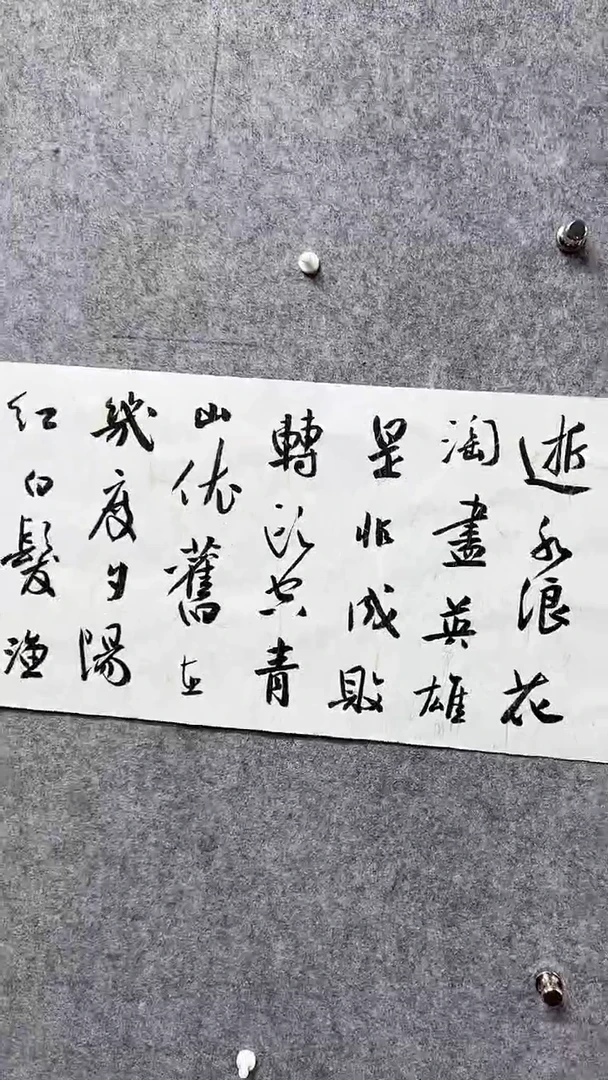 逝水浪花
淘盡英雄
是非成敗
轉頭空青
山依舊在
幾度夕陽
紅白髮漁